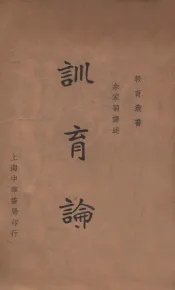 教育叢書
余家菊譯述
訓育論
上海中華書局印行